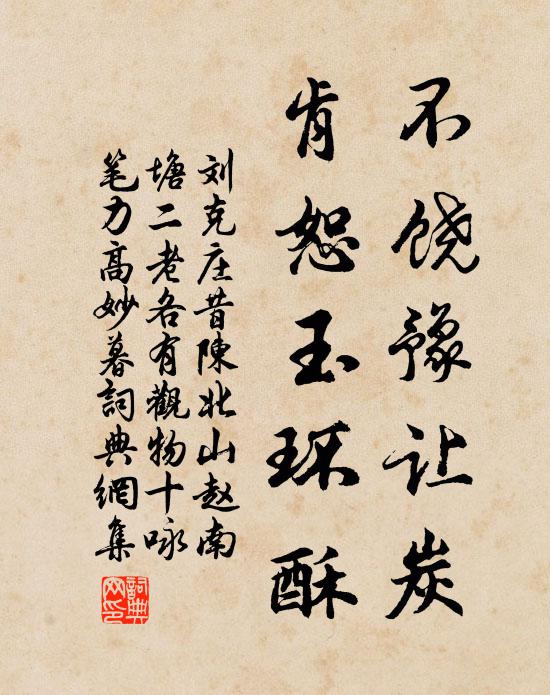 不饶豫让炭
肯恕玉环酥
刘克庄昔陳北山赵南
塘二老各有觀物十咏
笔力高妙暮詞典網集
詞典
网印